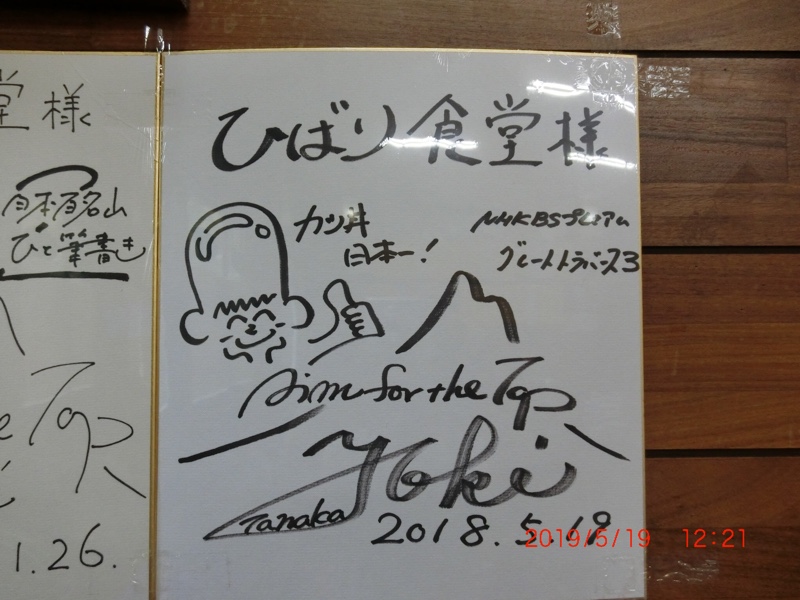 堂様
日本百名山
ひと筆書き
Top
1.26.
ひばり食堂様
カツ丼
日本一!
NHKBSプレミアム
グレートトラバース3
Aim for the Top
Yoki
Tanaka
2018.5.19
2019/5/19 12:21